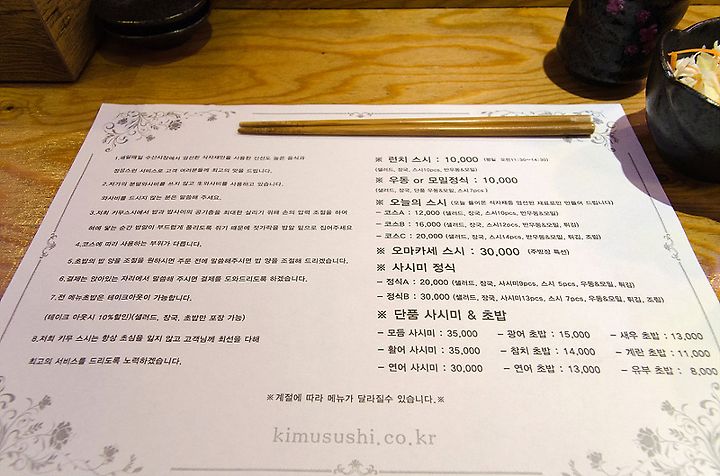 1.매일매일 수산시장에서 엄선한 식자재만을 사용한 신선도 높은 음식과
정성스런 서비스로 고객 여러분들께 최고의 맛을 드립니다.
2.저가의 분말와사비를 쓰지 않고 생와사비를 사용하고 있습니다.
와사비를 드시지 않는 분은 말씀해 주세요.
3.저희 키무스시에서 밥과 밥사이의 공기층을 최대한 살리기 위해 손의 압력 조절을 하여
혀에 닿는 순간 밥알이 부드럽게 풀리도록 쥐기 때문에 젓가락을 밥알 밑으로 집어주세요
4.코스에 따라 사용하는 부위가 다릅니다.
5.초밥의 밥 양을 조절을 원하시면 주문 전에 말씀해주시면 밥 양을 조절해 드리겠습니다.
6.결제는 앉아있는 자리에서 말씀해 주시면 결제를 도와드리도록 하겠습니다.
7.전 메뉴초밥은 테이크아웃이 가능합니다.
(테이크 아웃시 10%할인)(샐러드, 장국, 초밥만 포장 가능)
8.저희 키무 스시는 항상 초심을 잃지 않고 고객님께 최선을 다해
최고의 서비스를 드리도록 노력하겠습니다.
※ 런치 스시 : 10,000 (평일 오전11:30~14:30)
(샐러드, 장국, 스시10pcs, 반우동&모밀)
※ 우동 or 모밀정식 : 10,000
(샐러드, 장국, 단품 우동&모밀, 스시7pcs )
※ 오늘의 스시 (오늘 들어온 식자재중 엄선된 재료로만 만들어 드립니다)
- 코스A : 12,000 (샐러드, 장국, 스시10pcs, 반우동&모밀)
- 코스B : 16,000 (샐러드, 장국, 스시12cs, 반우동&모밀, 튀김)
- 코스C : 20,000 (샐러드, 장국, 스시14pcs, 반우동&모밀, 튀김, 조림)
※ 오마카세 스시 : 30,000 (주방장 특선)
※ 사시미 정식
- 정식A : 20,000 (샐러드, 장국, 사시미9pcs, 스시 5pcs, 우동&모밀, 튀김)
- 정식B : 30,000 (샐러드, 장국, 사시미13pcs, 스시 7pcs, 우동&모밀, 튀김, 조림)
※ 단품 사시미 & 초밥
- 모듬 사시미 : 35,000 - 광어 초밥 : 15,000 - 새우 초밥 : 13,000
- 활어 사시미 : 35,000 - 참치 초밥 : 14,000 - 계란 초밥 : 11,000
- 연어 사시미 : 30,000 - 연어 초밥 : 13,000 - 유부 초밥 : 8,000
※계절에 따라 메뉴가 달라질수 있습니다.※
kimusushi.co.kr